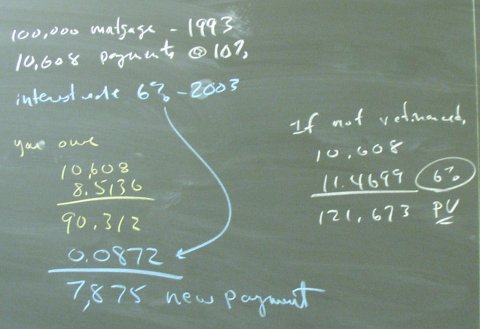 100,000 matgage - 1993
10,608 payments @ 10%
interest rate 6% - 2003
you owe
10,608
8.5136
90,312
0.0872
7,875 new payment
If not refinanced,
10,608
11.4699 6%
121,673 PV